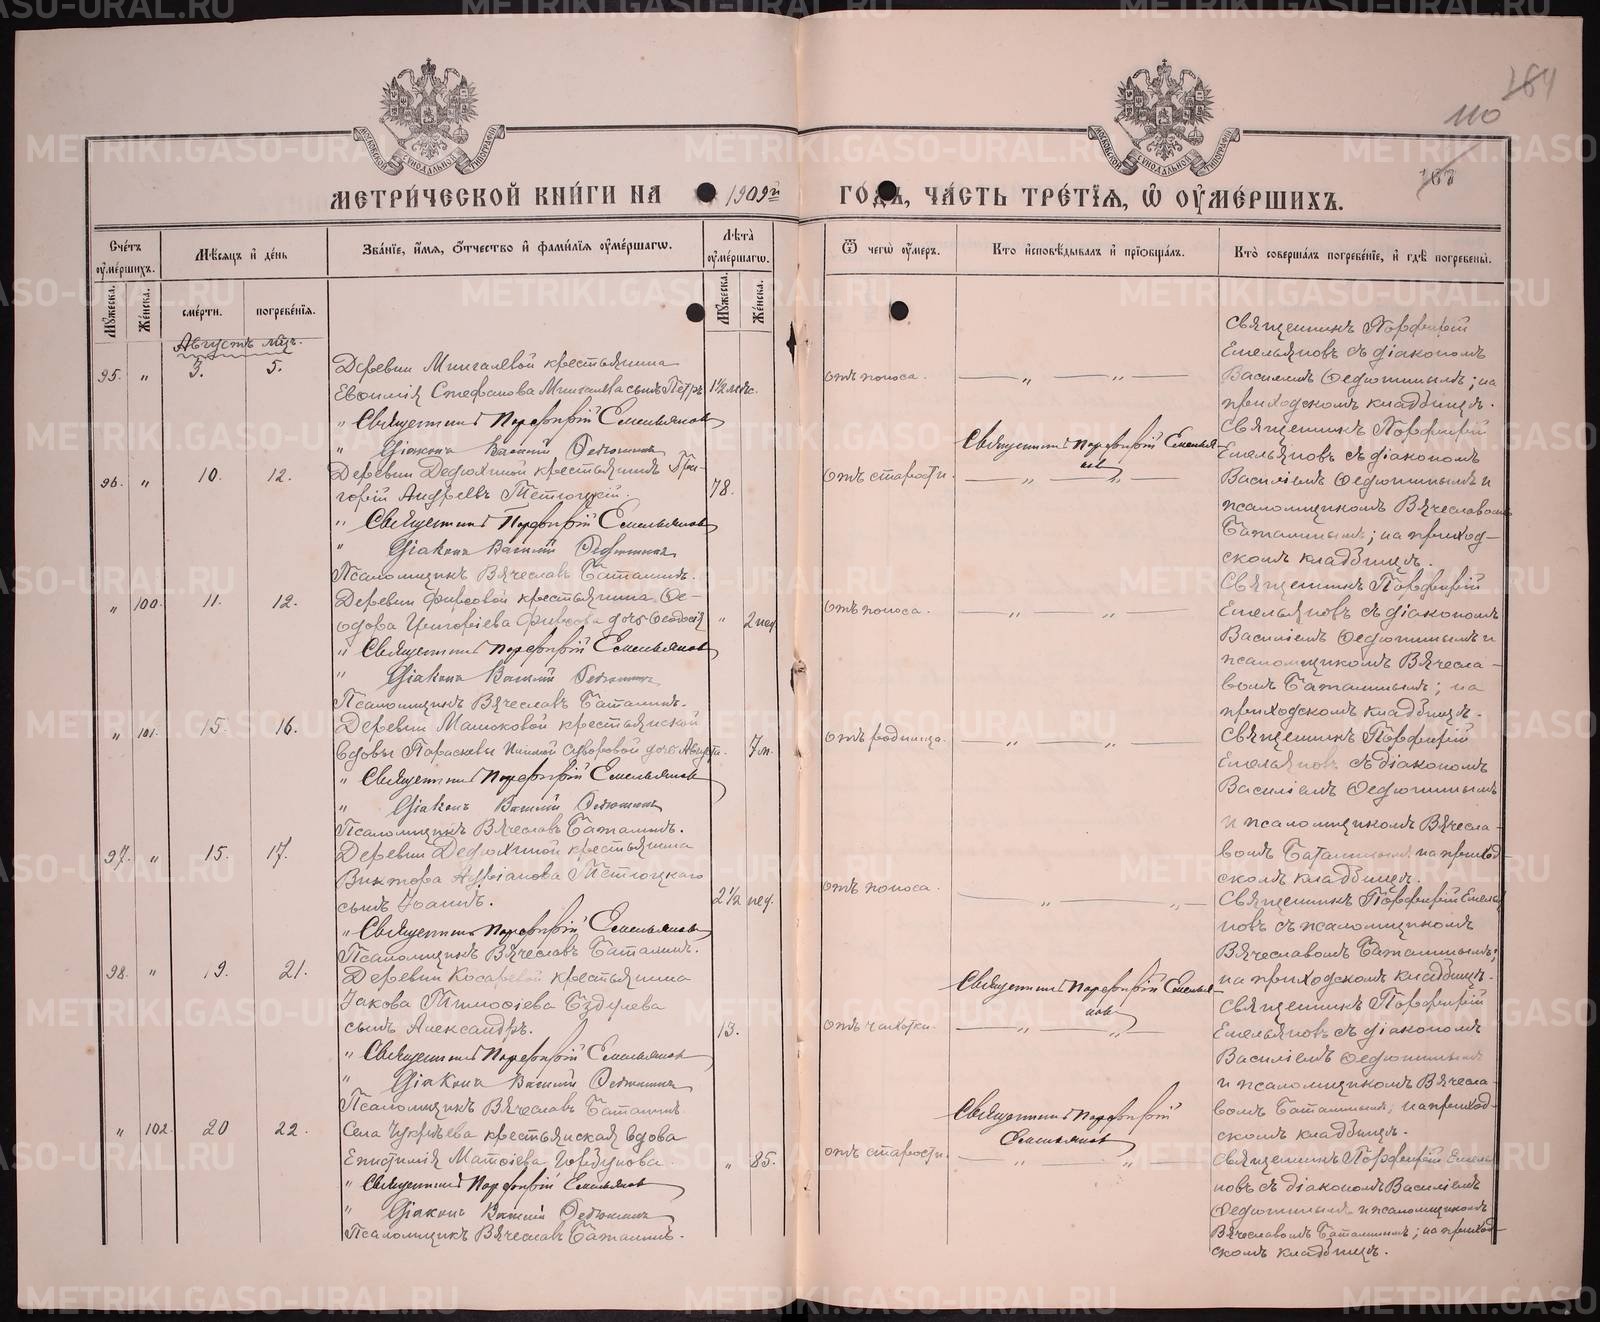 184
110
МЕТРИЧЕСКОЙ КНИГИ НА 1909й ГОДЪ, ЧАСТЬ ТРЕТІЯ, Ѿ ОУМЕРШИХЪ.
МОСКОВСКОЙ СѴНОДАЛЬНОЙ ТИПОГРАФІИ
МОСКОВСКОЙ СѴНОДАЛЬНОЙ ТИПОГРАФІИ
Счетъ оумершихъ.
Мужеска.
Женска.
Мѣсяцъ и день
смерти.
погребенія.
Званіе, имя, отчество и фамилія оумершагѡ.
Лѣта оумершагѡ.
Мужеска.
Женска.
Ѿ чегѡ оумеръ.
Кто исповѣдывалъ и пріобщалъ.
Кто совершалъ погребеніе, и гдѣ погребены.
Августъ мѣс.
95. " 3. 5.
Деревни Мингалевой крестьянина
Евѳимія Стефанова Мингалева сынъ Петръ 1½ мѣс.
" Священникъ Порфирій Емельяновъ
" Діаконъ Василій Ѳедюшинъ
отъ поноса.
Священникъ Порфирій
Емельяновъ съ діакономъ
Василіемъ Ѳедюшинымъ; на
приходскомъ кладбищѣ.
96. " 10. 12.
Деревни Дедюхиной крестьянинъ Гри-
горій Андреевъ Тетюцкій. 78.
" Священникъ Порфирій Емельяновъ
" Діаконъ Василій Ѳедюшинъ
Псаломщикъ Вячеславъ Баталинъ.
отъ старости.
Священникъ Порфирій Емелья-
новъ
Священникъ Порфирій
Емельяновъ съ діакономъ
Василіемъ Ѳедюшинымъ и
псаломщикомъ Вячеславомъ
Баталинымъ; на приход-
скомъ кладбищѣ.
" 100. 11. 12.
Деревни Фирсовой крестьянина Ѳе-
одора Григоріева Фирсова дочь Ѳеодосія " 2 нед.
" Священникъ Порфирій Емельяновъ
" Діаконъ Василій Ѳедюшинъ
Псаломщикъ Вячеславъ Баталинъ.
отъ поноса.
Священникъ Порфирій
Емельяновъ съ діакономъ
Василіемъ Ѳедюшинымъ и
псаломщикомъ Вячесла-
вомъ Баталинымъ; на
приходскомъ кладбищѣ.
" 101. 15. 16.
Деревни Мамоковой крестьянской
вдовы Парасковы Суворовой дочь " 7 м.
" Священникъ Порфирій Емельяновъ
" Діаконъ Василій Ѳедюшинъ
Псаломщикъ Вячеславъ Баталинъ.
отъ родимца.
Священникъ Порфирій
Емельяновъ съ діакономъ
Василіемъ Ѳедюшинымъ
и псаломщикомъ Вячесла-
вомъ Баталинымъ; на приход-
скомъ кладбищѣ.
97. " 15. 17.
Деревни Дедюхиной крестьянина
Виктора Тетюцкаго
сынъ Іоаннъ. 2½ нед.
" Священникъ Порфирій Емельяновъ
Псаломщикъ Вячеславъ Баталинъ.
отъ поноса.
Священникъ Порфирій Емелья-
новъ съ псаломщикомъ
Вячеславомъ Баталинымъ;
на приходскомъ кладбищѣ.
98. " 19. 21.
Деревни Косаревой крестьянина
Іакова Тимоѳіева
сынъ Александръ. 13.
" Священникъ Порфирій Емельяновъ
" Діаконъ Василій Ѳедюшинъ
Псаломщикъ Вячеславъ Баталинъ.
отъ чахотки.
Священникъ Порфирій Емелья-
новъ
Священникъ Порфирій
Емельяновъ съ діакономъ
Василіемъ Ѳедюшинымъ
и псаломщикомъ Вячесла-
вомъ Баталинымъ; на приход-
скомъ кладбищѣ.
" 102. 20 22.
Села крестьянская вдова
Епистимія Матѳіева Горбунова. " 85.
" Священникъ Порфирій Емельяновъ
" Діаконъ Василій Ѳедюшинъ
Псаломщикъ Вячеславъ Баталинъ.
отъ старости.
Священникъ Порфирій
Емельяновъ
Священникъ Порфирій Емелья-
новъ съ діакономъ Василіемъ
Ѳедюшинымъ и псаломщикомъ
Вячеславомъ Баталинымъ; на приход-
скомъ кладбищѣ.
METRIKI.GASO-URAL.RU